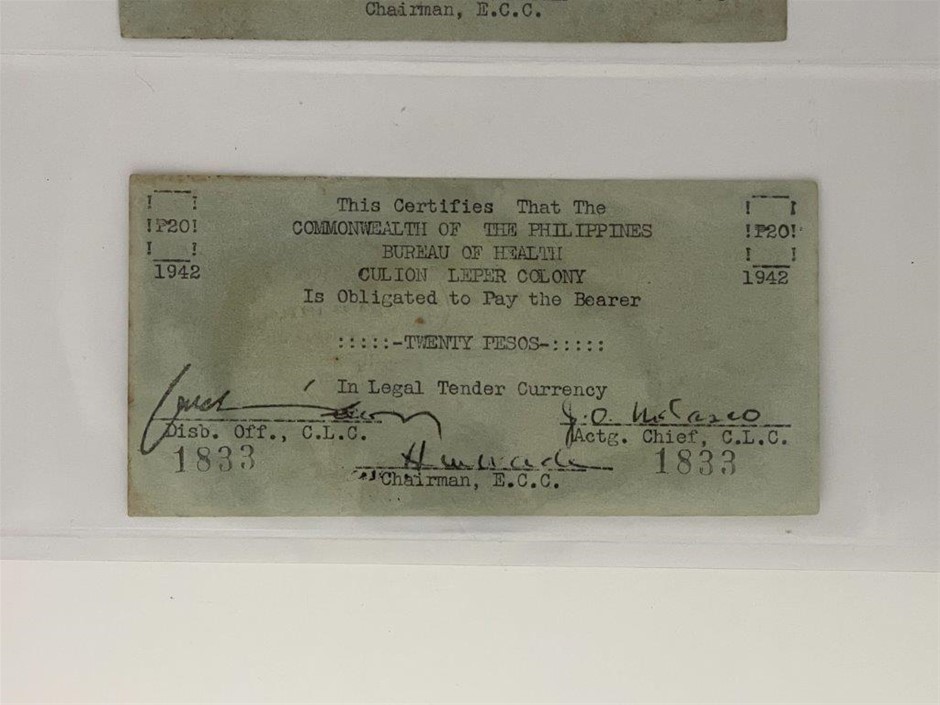 Chairman, E.C.C.
This Certifies That The
!P20! COMMONWEALTH OF THE PHILIPPINES !P20!
BUREAU OF HEALTH
1942 CULION LEPER COLONY 1942
Is Obligated to Pay the Bearer
:::::-TWENTY PESOS-:::::
In Legal Tender Currency
Disb. Off., C.L.C. Actg. Chief, C.L.C.
1833 1833
Chairman, E.C.C.